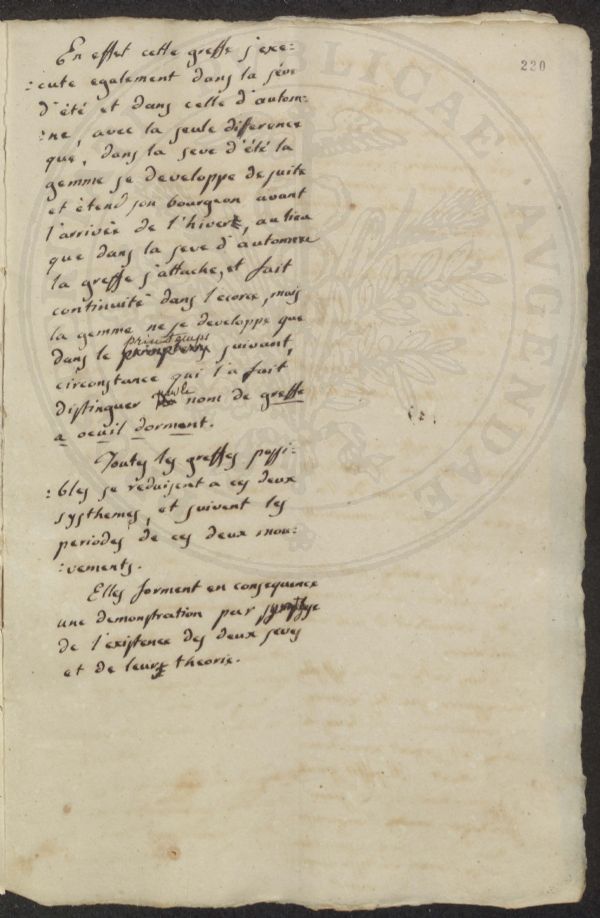 220
En effet cette greffe s'exe:
:cute egalement dans la séve
d'été et dans celle d'autom:
:ne, avec la seule diference
que, dans la seve d'été la
gemme se developpe de suite
et étend son bourgeon avant
l'arrivée de l'hiver, au lieu
que dans la seve d'automne
la greffe s'attache, et fait
continuité dans l'ecorce, mais
la gemme ne se developpe que
printemps
dans le suivant,
circonstance qui l'a fait
distinguer nom de greffe
a oeuil dorment.
Toutes les greffes possi:
:bles se reduisent a ces deux
systhemes, et suivent les
periodes de ces deux mou:
:vements.
Elles forment en consequence
une demonstration par
de l'existence des deux seves
et de leur theorie.
PUBLICAE UTILITATI AVENDAE